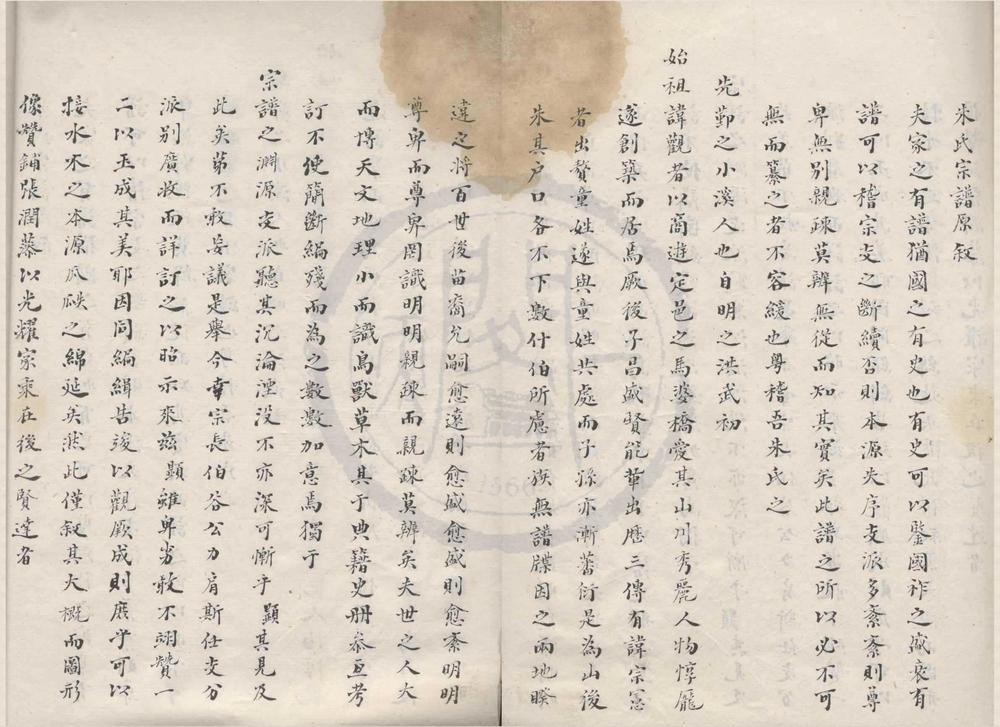 朱氏宗譜原敘
夫家之有譜猶國之有史也有史可以鑒國祚之盛衰有
譜可以稽宗支之斷續否則本源失序支派多紊紊則尊
卑無別親疎莫辨無從而知其實矣此譜之所以必不可
無而纂之者不容緩也粵稽吾朱氏之
先鄞之小溪人也自明之洪武初
始祖諱觀者以商遊定邑之馬婆橋愛其山川秀麗人物惇龐
遂創築而居焉厥後子昌盛賢能輩出歷三傳有諱宗憲
者出贅童姓遂與童姓共處而子孫亦漸蕃衍是為山後
朱其戶口各不下數什伯所慮者族無譜牒因之兩地暌
違之將百世後苗裔允嗣愈遠則愈盛愈盛則愈紊明明
尊卑而尊卑罔識明明親疎而親疎莫辨矣夫世之人大
而博天文地理小而識鳥獸草木其于典籍史冊叅互考
訂不使簡斷編殘而為之數數加意焉獨于
宗譜之淵源支派聽其沉淪湮没不亦深可慚乎顯其見及
此矣第不敢妄議是舉今幸宗長伯谷公力肩斯任支分
派別廣收而詳訂之以昭示來茲顯雖卑劣敢不翊贊一
二以玉成其美耶因同編緝告竣以觀厥成則庶乎可以
接水木之本源瓜瓞之綿延矣然此僅敘其大概而圖形
像贊鋪張潤藻以光耀家乘在後之賢達者